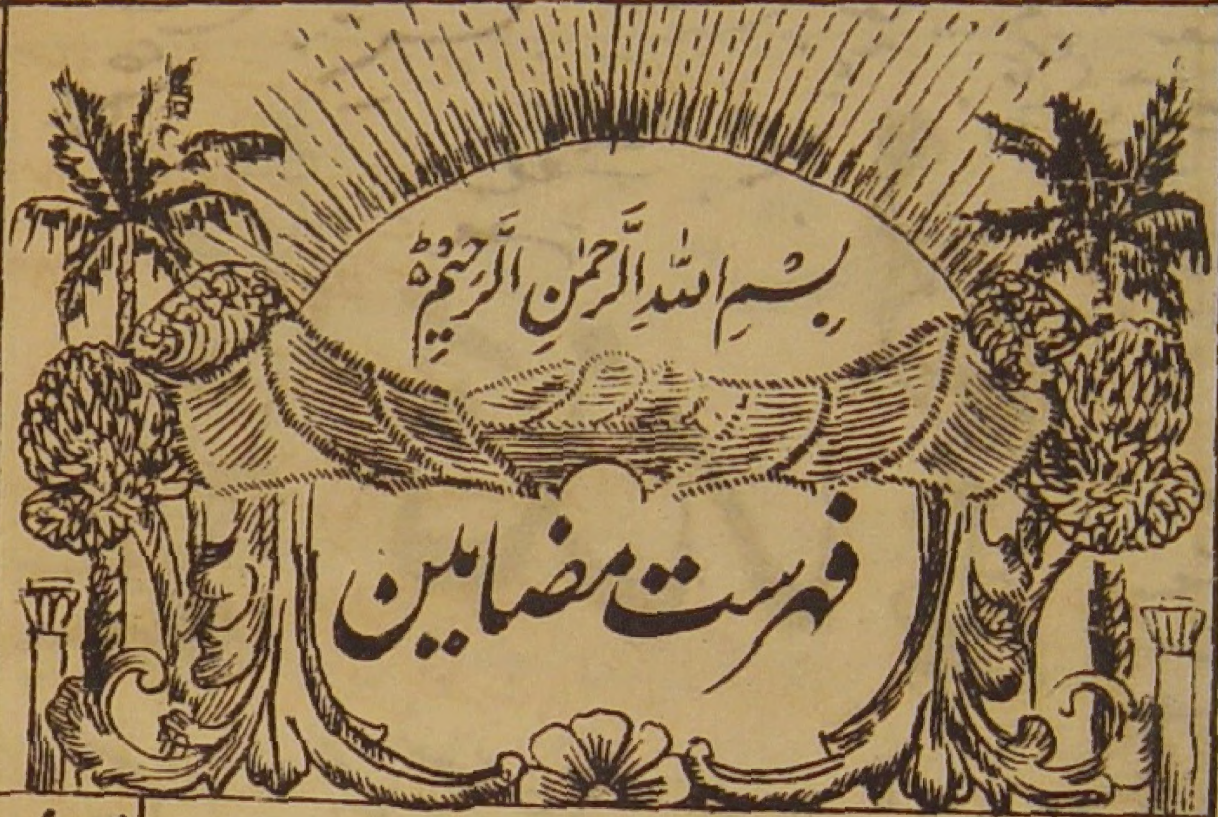 بِسْمِ اللهِ الرَّحْمٰنِ الرَّحِيْمِ
فہرست مضامین